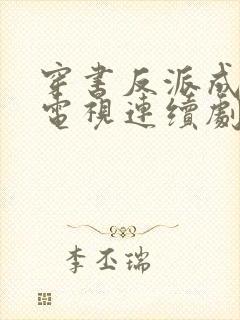 穿書反派成
電視連續劇
李丕瑞